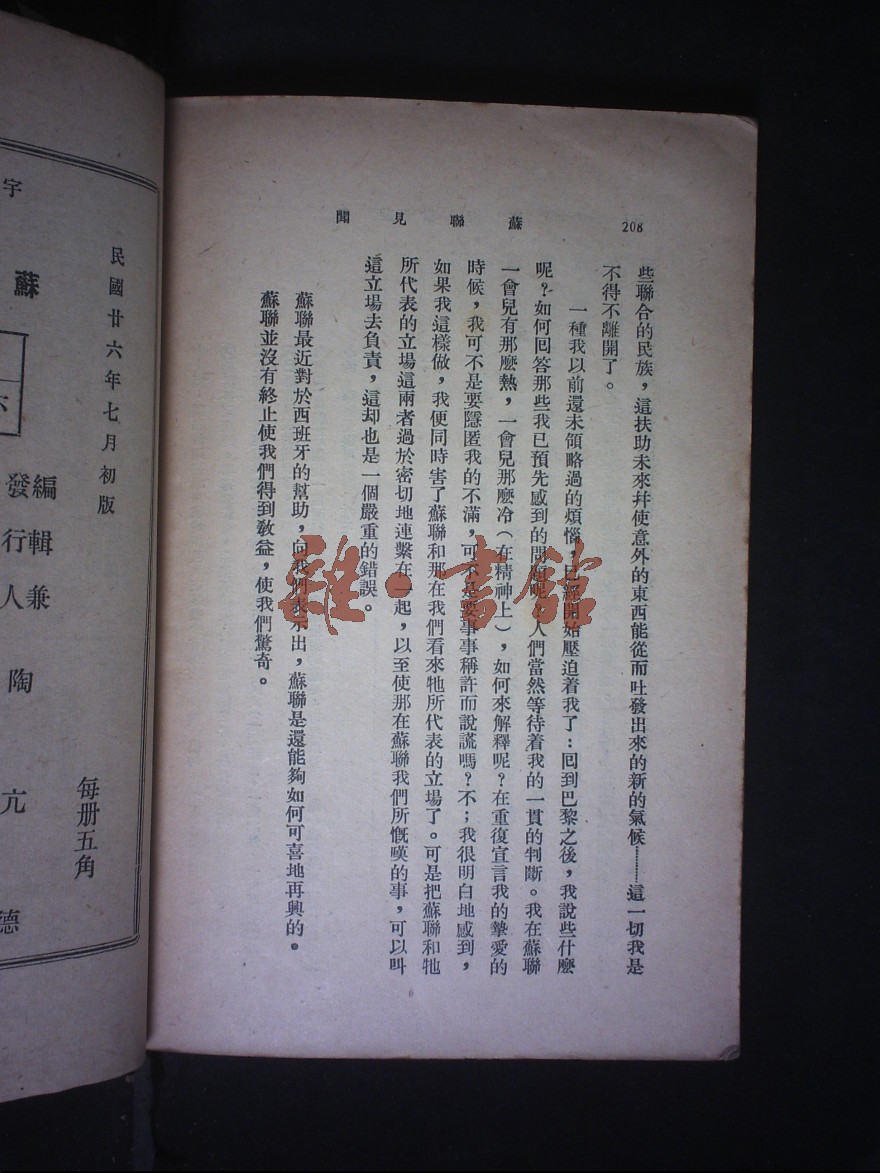 208
蘇聯見聞
些聯合的民族，這扶助未來幷使意外的東西能從而吐發出來的新的氣候………這一切我是
不得不離開了。
一種我以前還未領略過的煩惱，已經開始壓迫着我了：囘到巴黎之後，我說些什麽
呢？如何囘答那些我已預先感到的問題呢？人們當然等待着我的一貫的判斷。我在蘇聯
一會兒有那麽熱，一會兒那麽冷（在精神上），如何來解釋呢？在重復宣言我的摯愛的
時候，我可不是要隱匿我的不滿，可不是要事事稱許而說謊嗎？不；我很明白地感到，
如果我這樣做，我便同時害了蘇聯和那在我們看來牠所代表的立場了。可是把蘇聯和牠
所代表的立場這兩者過於密切地連繫在一起，以至使那在蘇聯我們所慨嘆的事，可以叫
這立場去負責，這却也是一個嚴重的錯誤。
蘇聯最近對於西班牙的幫助，向我們表示出，蘇聯是還能夠如何可喜地再興的。
蘇聯並沒有終止使我們得到敎益，使我們驚奇。
雜·書館
民國廿六年七月初版
每册五角
編輯兼
發行人
陶亢德
蘇
宇